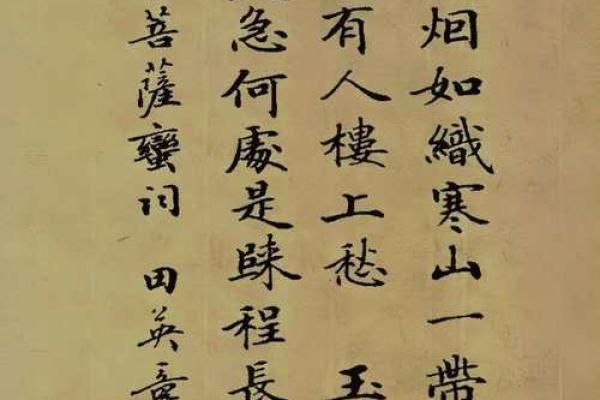 烟如織寒山一帶
有人樓上愁 玉
急何處是歸程長
菩薩蠻詞 田英章